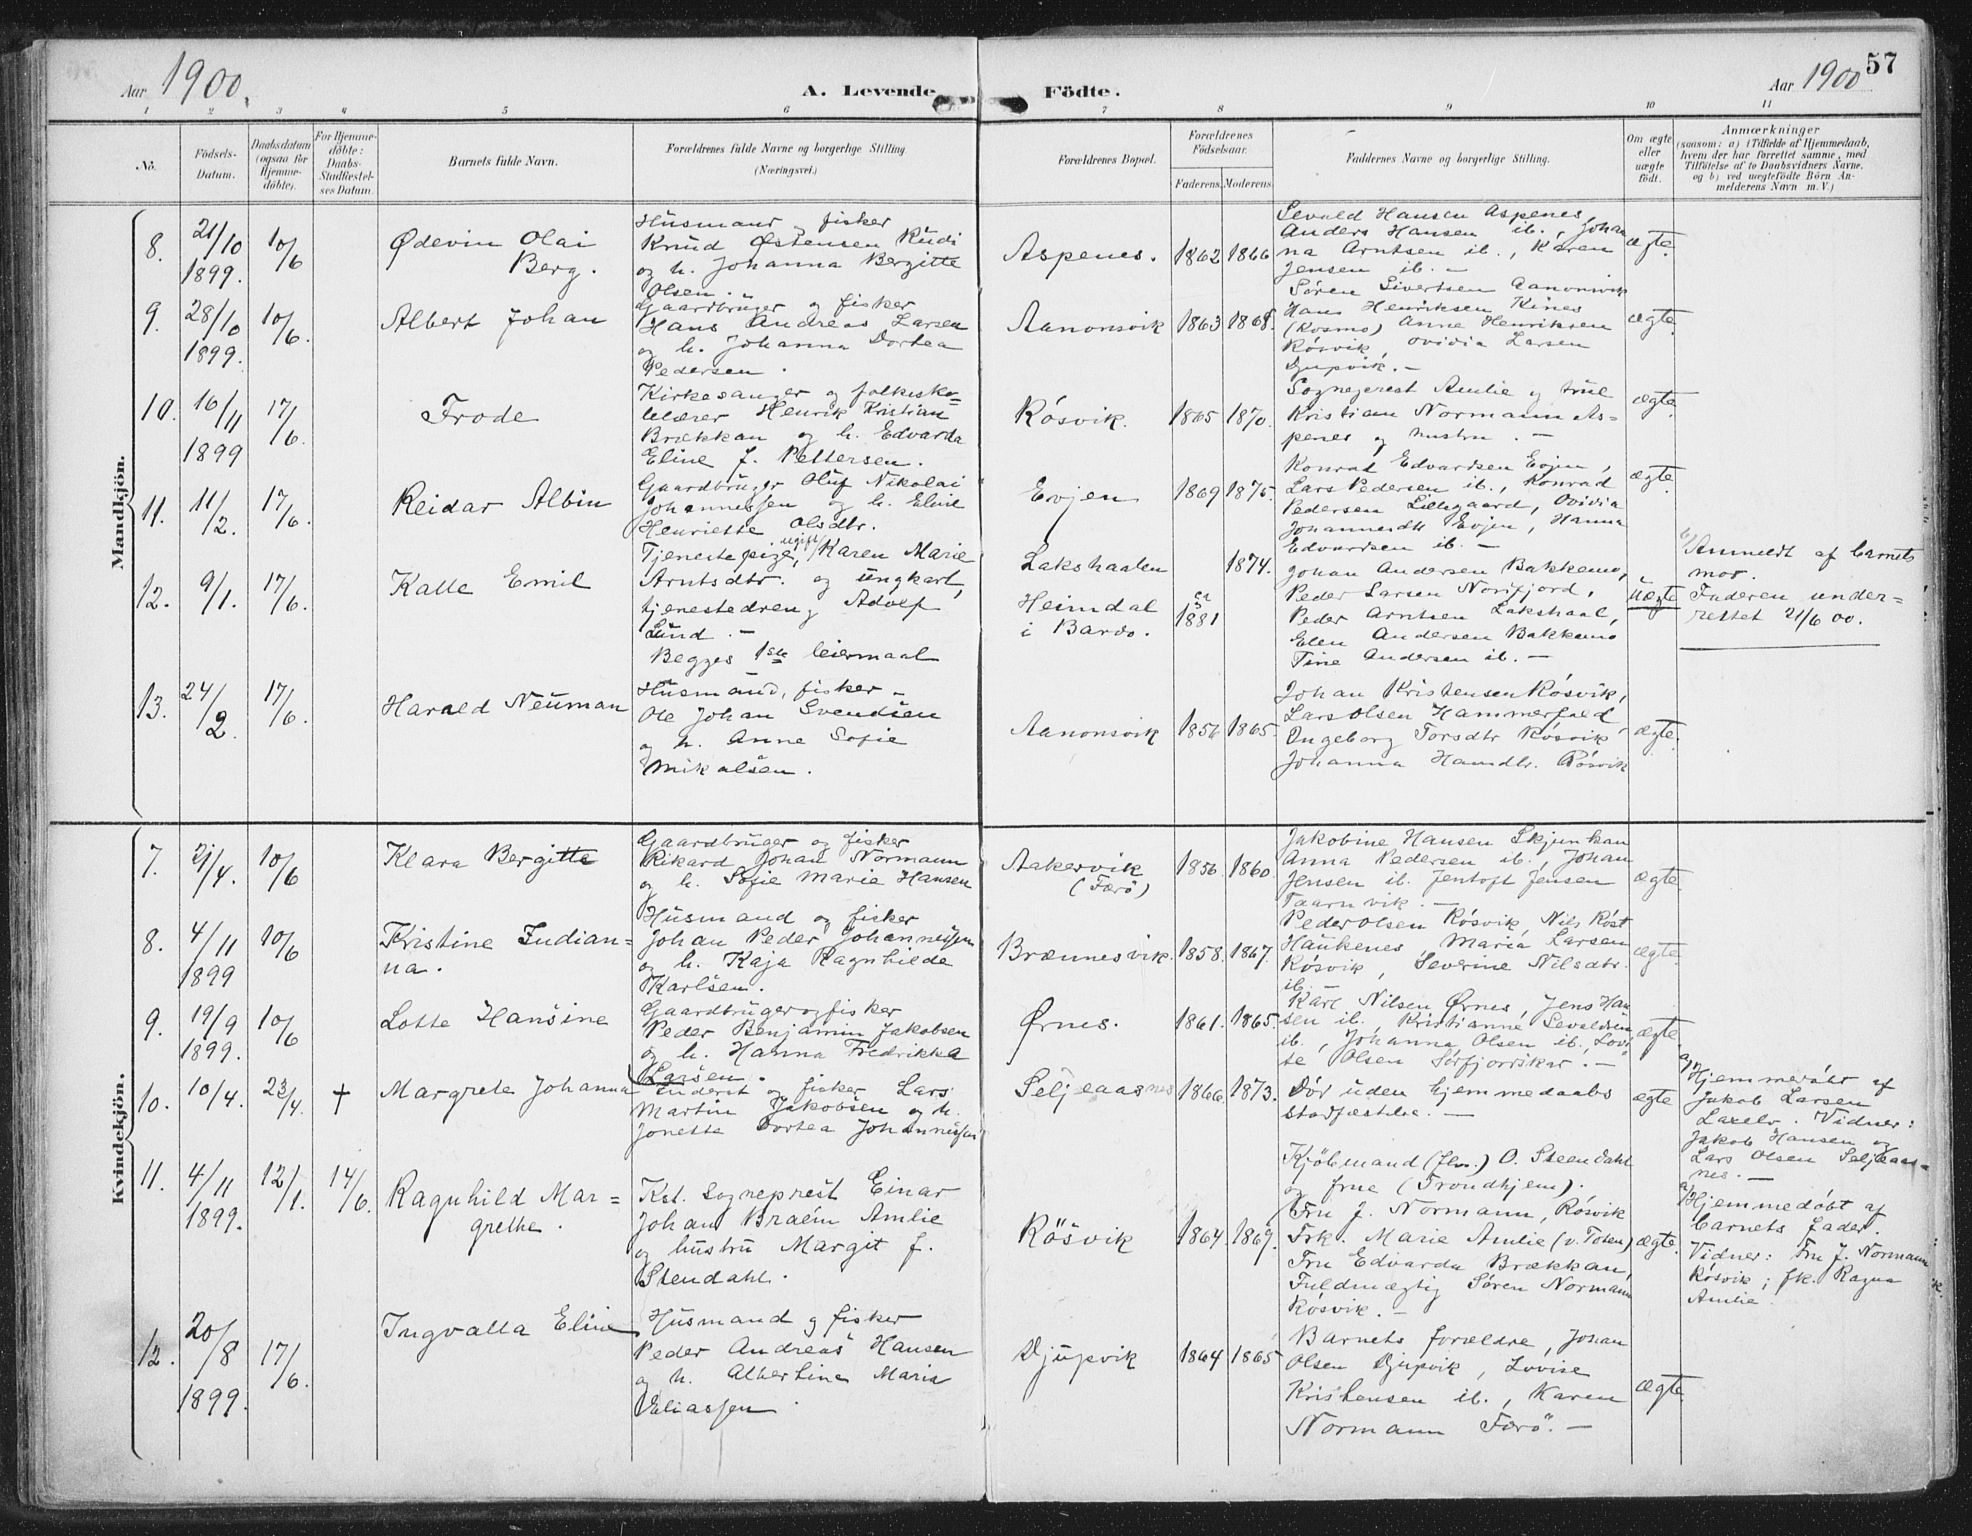 Aar 1900.
A. Levende Födte.
Aar 1900
57
1 2 3 4 5 6 7 8 9 10 11
No.
Födsels-
Datum.
Daabsdatum
(ogsaa for
Hjemme-
döbte).
For Hjemme-
döbte:
Daabs-
Stadfæstel-
ses Datum.
Barnets fulde Navn.
Forældrenes fulde Navne og borgerlige Stilling.
(Næringsvei.)
Forældrenes Bopæl.
Forældrenes
Födselsaar.
Faderens. Moderens.
Faddernes Navne og borgerlige Stilling.
Om ægte
eller
uægte
födt.
Anmærkninger
(saasom: a) i Tilfælde af Hjemmedaab,
hvem der har forrettet samme, med
Tilföielse af to Daabsvidners Navne,
og b) ved uægtefödte Börn An-
melderens Navn m. V.)
Mandkjön.
8. 21/10 1899. 10/6 Ødevin Olai
Berg.
Husmand, fisker
Knud Østensen Rudi
og h. Johanna Bergitte
Olsen.
Aspenes. 1862 1866
Sevald Hansen Aspenes,
Anders Hansen ib., Johan
na Arntsen ib., Karen
Jensen ib. —
ægte.
9. 28/10 1899. 10/6. Albert Johan
Gaardbruger og fisker
Hans Andreas Larsen
og h. Johanna Dortea
Pedersen.
Aanonsvik 1863 1868.
Søren Sivertsen Aanonsvik
Hans Henriksen Kines
(Kosmo) Anne Henriksen
Røsvik, Ovidia Larsen
Djupvik. —
ægte.
10. 16/11 1899 17/6. Frode
Kirkesanger og folkesko=
lelærer Henrik Kristian
Brækkan og h. Edvarda
Eline f. Pettersen.
Røsvik. 1865 1870.
Sogneprest Amlie og frue
Kristian Normann As-
penes og hustru. —
ægte.
11. 11/2. 17/6. Reidar Albin
Gaardbruger Oluf Nikolai
Johannessen og h. Eline
Henriette Olsdtr.
Evjen 1869 1875.
Konrad Edvardsen Evjen,
Lars Pedersen ib., Konrad
Pedersen Lillegaard, Ovidia
Johannesdtr Evjen, Hanna
Edvardsen ib. —
ægte.
12. 9/1. 17/6. Kalle Emil
Tjenestepige, ugift, Karen Marie
Arntsdtr. og ungkarl,
tjenestedreng Adolf
Lund. —
Begges 1ste leiermaal
Lakshaalen
Heimdal
i Bardo.
ca
1881 1874.
Johan Andersen Bakkemo,
Peder Larsen Norfjord,
Peder Arntsen Lakshaal,
Elen Andersen Bakkemo
Tine Andersen ib. —
uægte
b) Anmeldt af barnets
mor.
Faderen under=
rettet 21/6 00.
13. 24/2. 17/6. Harald Neuman
Husmand, fisker —
Ole Johan Svendsen
og h. Anne Sofie
Mikalsen.
Aanonsvik 1856 1865.
Johan Kristensen Røsvik,
Lars Olsen Hammerfald,
Ingeborg Torsdtr Røsvik
Johanna Hansdtr. Røsvik
ægte.
Kvindekjön.
7. 21/4. 10/6 Klara Bergitte
Gaardbruger og fisker
Rikard Johan Normann
og h. Sofie Marie Hansen
Aakervik
(Færø)
1856 1860.
Jakobine Hansen
Anna Pedersen ib., Johan
Jensen ib. Jentoft Jensen
Taarnvik. —
ægte.
8. 4/11 1899 10/6 Kristine Indian=
na.
Husmand og fisker
Johan Peder Johannessen
og h. Kaja Ragnhilde
Karlsen.
Brænnesvik. 1858. 1867.
Peder Olsen Røsvik, Nils Røst
Haukenes, Maria Larsen
Røsvik, Severine Nilsdtr.
ib. —
ægte.
9. 19/9 1899. 10/6 Lotte Hansine
Gaardbruger og fisker
Peder Benjamin Jakobsen
og h. Hanna Fredrikka
Larsen.
Ørnes. 1861. 1865.
Karl Nilsen Ørnes, Jens Han
sen ib., Kristianne Sevaldsen
ib., Johanna Olsen ib., Lovi
se Olsen Sørfjordskar. —
ægte.
10. 10/4. 23/4. † Margrete Johanna
Inderst og fisker Lars
Martin Jakobsen og h.
Jonette Dortea Johannessen
Seljeaasnes 1866. 1873.
Død uden hjemmedaabs
stadfæstelse. —
ægte
a) Hjemmedøbt af
Jakob Larsen
Laxelv. Vidner:
Jakob Hansen og
Lars Olsen Seljeaas-
nes. —
11. 4/11 1899. 12/1. 14/6. Ragnhild Mar=
grethe.
Kst. Sogneprest Einar
Johan Braein Amlie
og hustru Margit f.
Stendahl.
Røsvik 1864. 1869.
Kjøbmand O. Steendahl
og frue (Trondhjem).
Fru J. Normann, Røsvik
Frk. Marie Amlie (v. Toten)
Fru Edvarda Brækkan,
Fuldmægtig Søren Normann
Røsvik. —
ægte.
a) Hjemmedøbt af
barnets fader.
Vidner: Fru J. Normann
Røsvik; fk. Ragna
Amlie.
12. 20/8 1899. 17/6. Ingvalla Eline
Husmand og fisker
Peder Andreas Hansen
og h. Albertine Maria
Eliassen.
Djupvik 1864 1865
Barnets forældre, Johan
Olsen Djupvik, Lovise
Kristensen ib., Karen
Normann Færø. —
ægte.